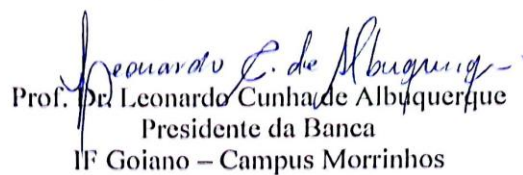 Leonardo C. de Albuquerque
Prof. Dr. Leonardo Cunha de Albuquerque
Presidente da Banca
IF Goiano – Campus Morrinhos